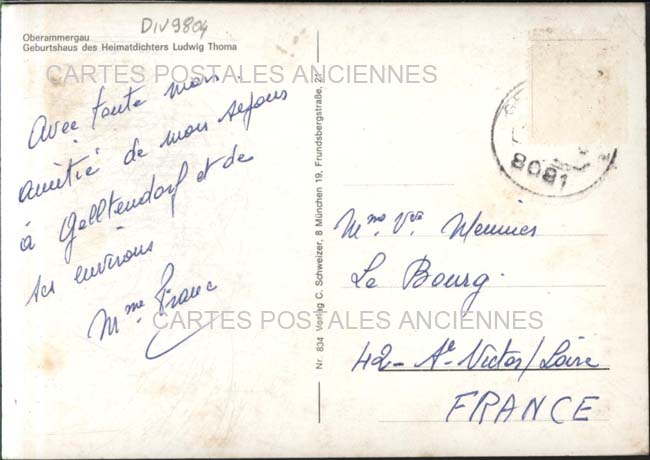 DIV9804
Oberammergau
Geburtshaus des Heimatdichters Ludwig Thoma
CARTES POSTALES ANCIENNES
Avec toute mon
amitié de mon séjour
à Gelltendorf et de
ses environs
Mme Franc
CARTES POSTALES ANCIENNES
Nr. 834 Verlag C. Schweizer, 8 München 19, Frundsbergstraße, 21
8081
Mme Vve Meunier
Le Bourg
42 - St Victor/Loire
FRANCE